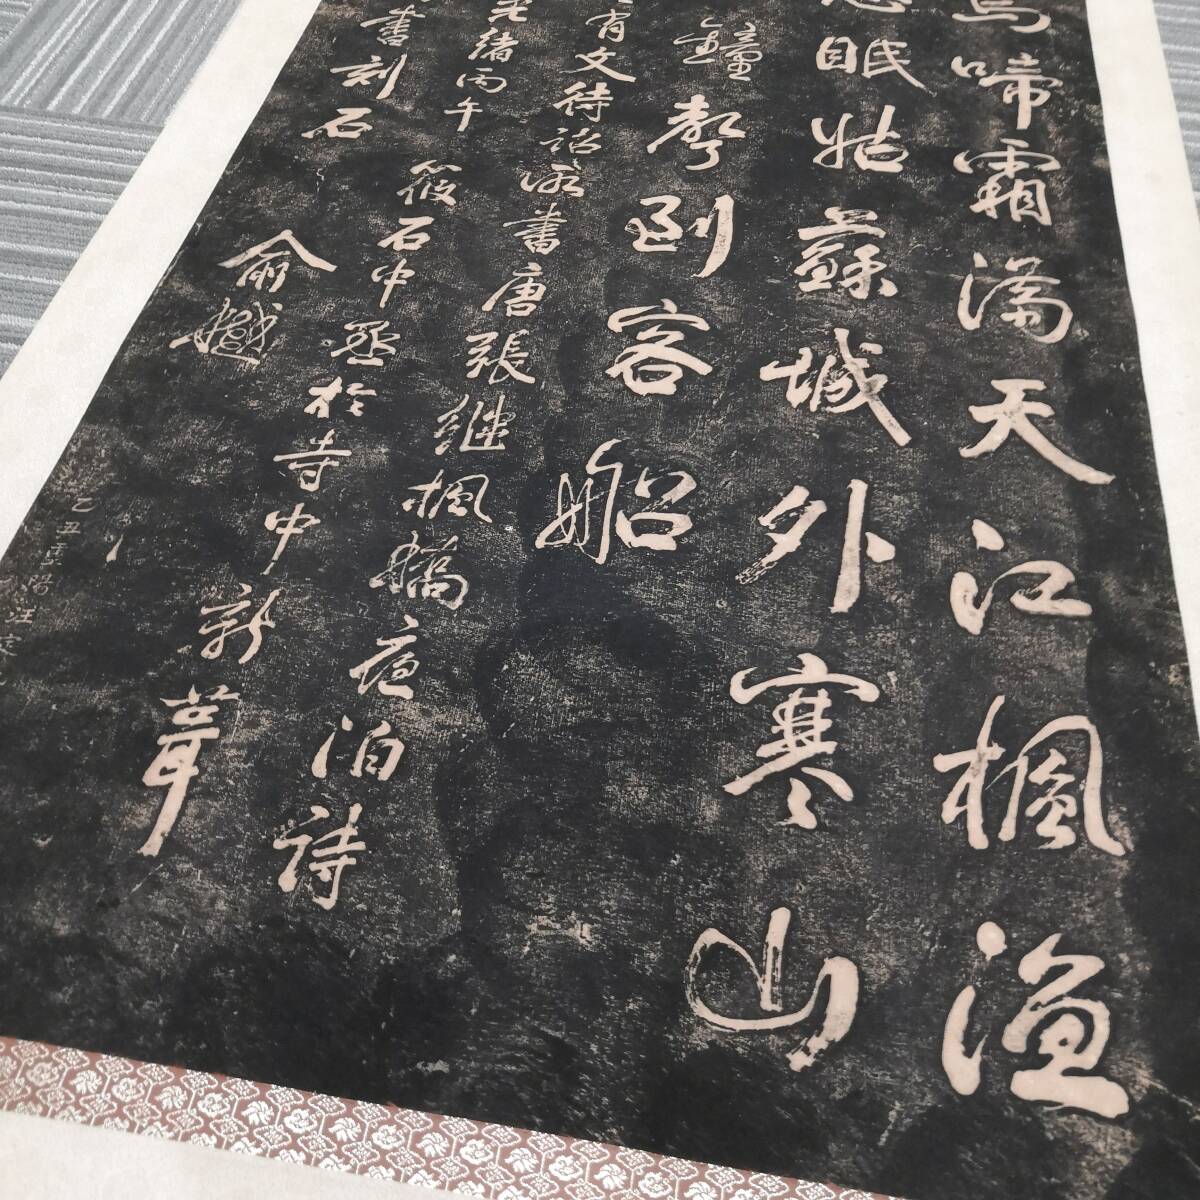 烏啼霜滿天江楓漁
愁眠姑蘇城外寒山
鐘聲到客船
有文待詔所書唐張繼楓橋夜泊詩
光緒丙午
筱石中丞於寺中新葺
書刻石
俞樾
乙丑
汪